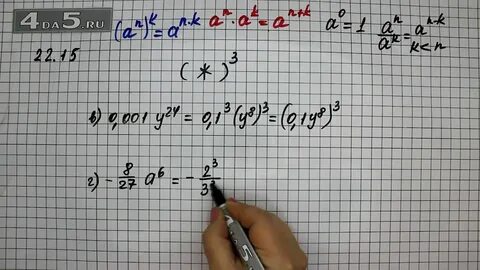 4DA5.RU
(aⁿ)ᵏ=aⁿ·ᵏ aⁿ·aᵏ=aⁿ⁺ᵏ a⁰=1 aⁿ/aᵏ=aⁿ⁻ᵏ k<n
22.15
(*)³
в) 0,001 y²⁴ = 0,1³(y⁸)³=(0,1y⁸)³
г) -8/27 a⁶ = -2³/3³